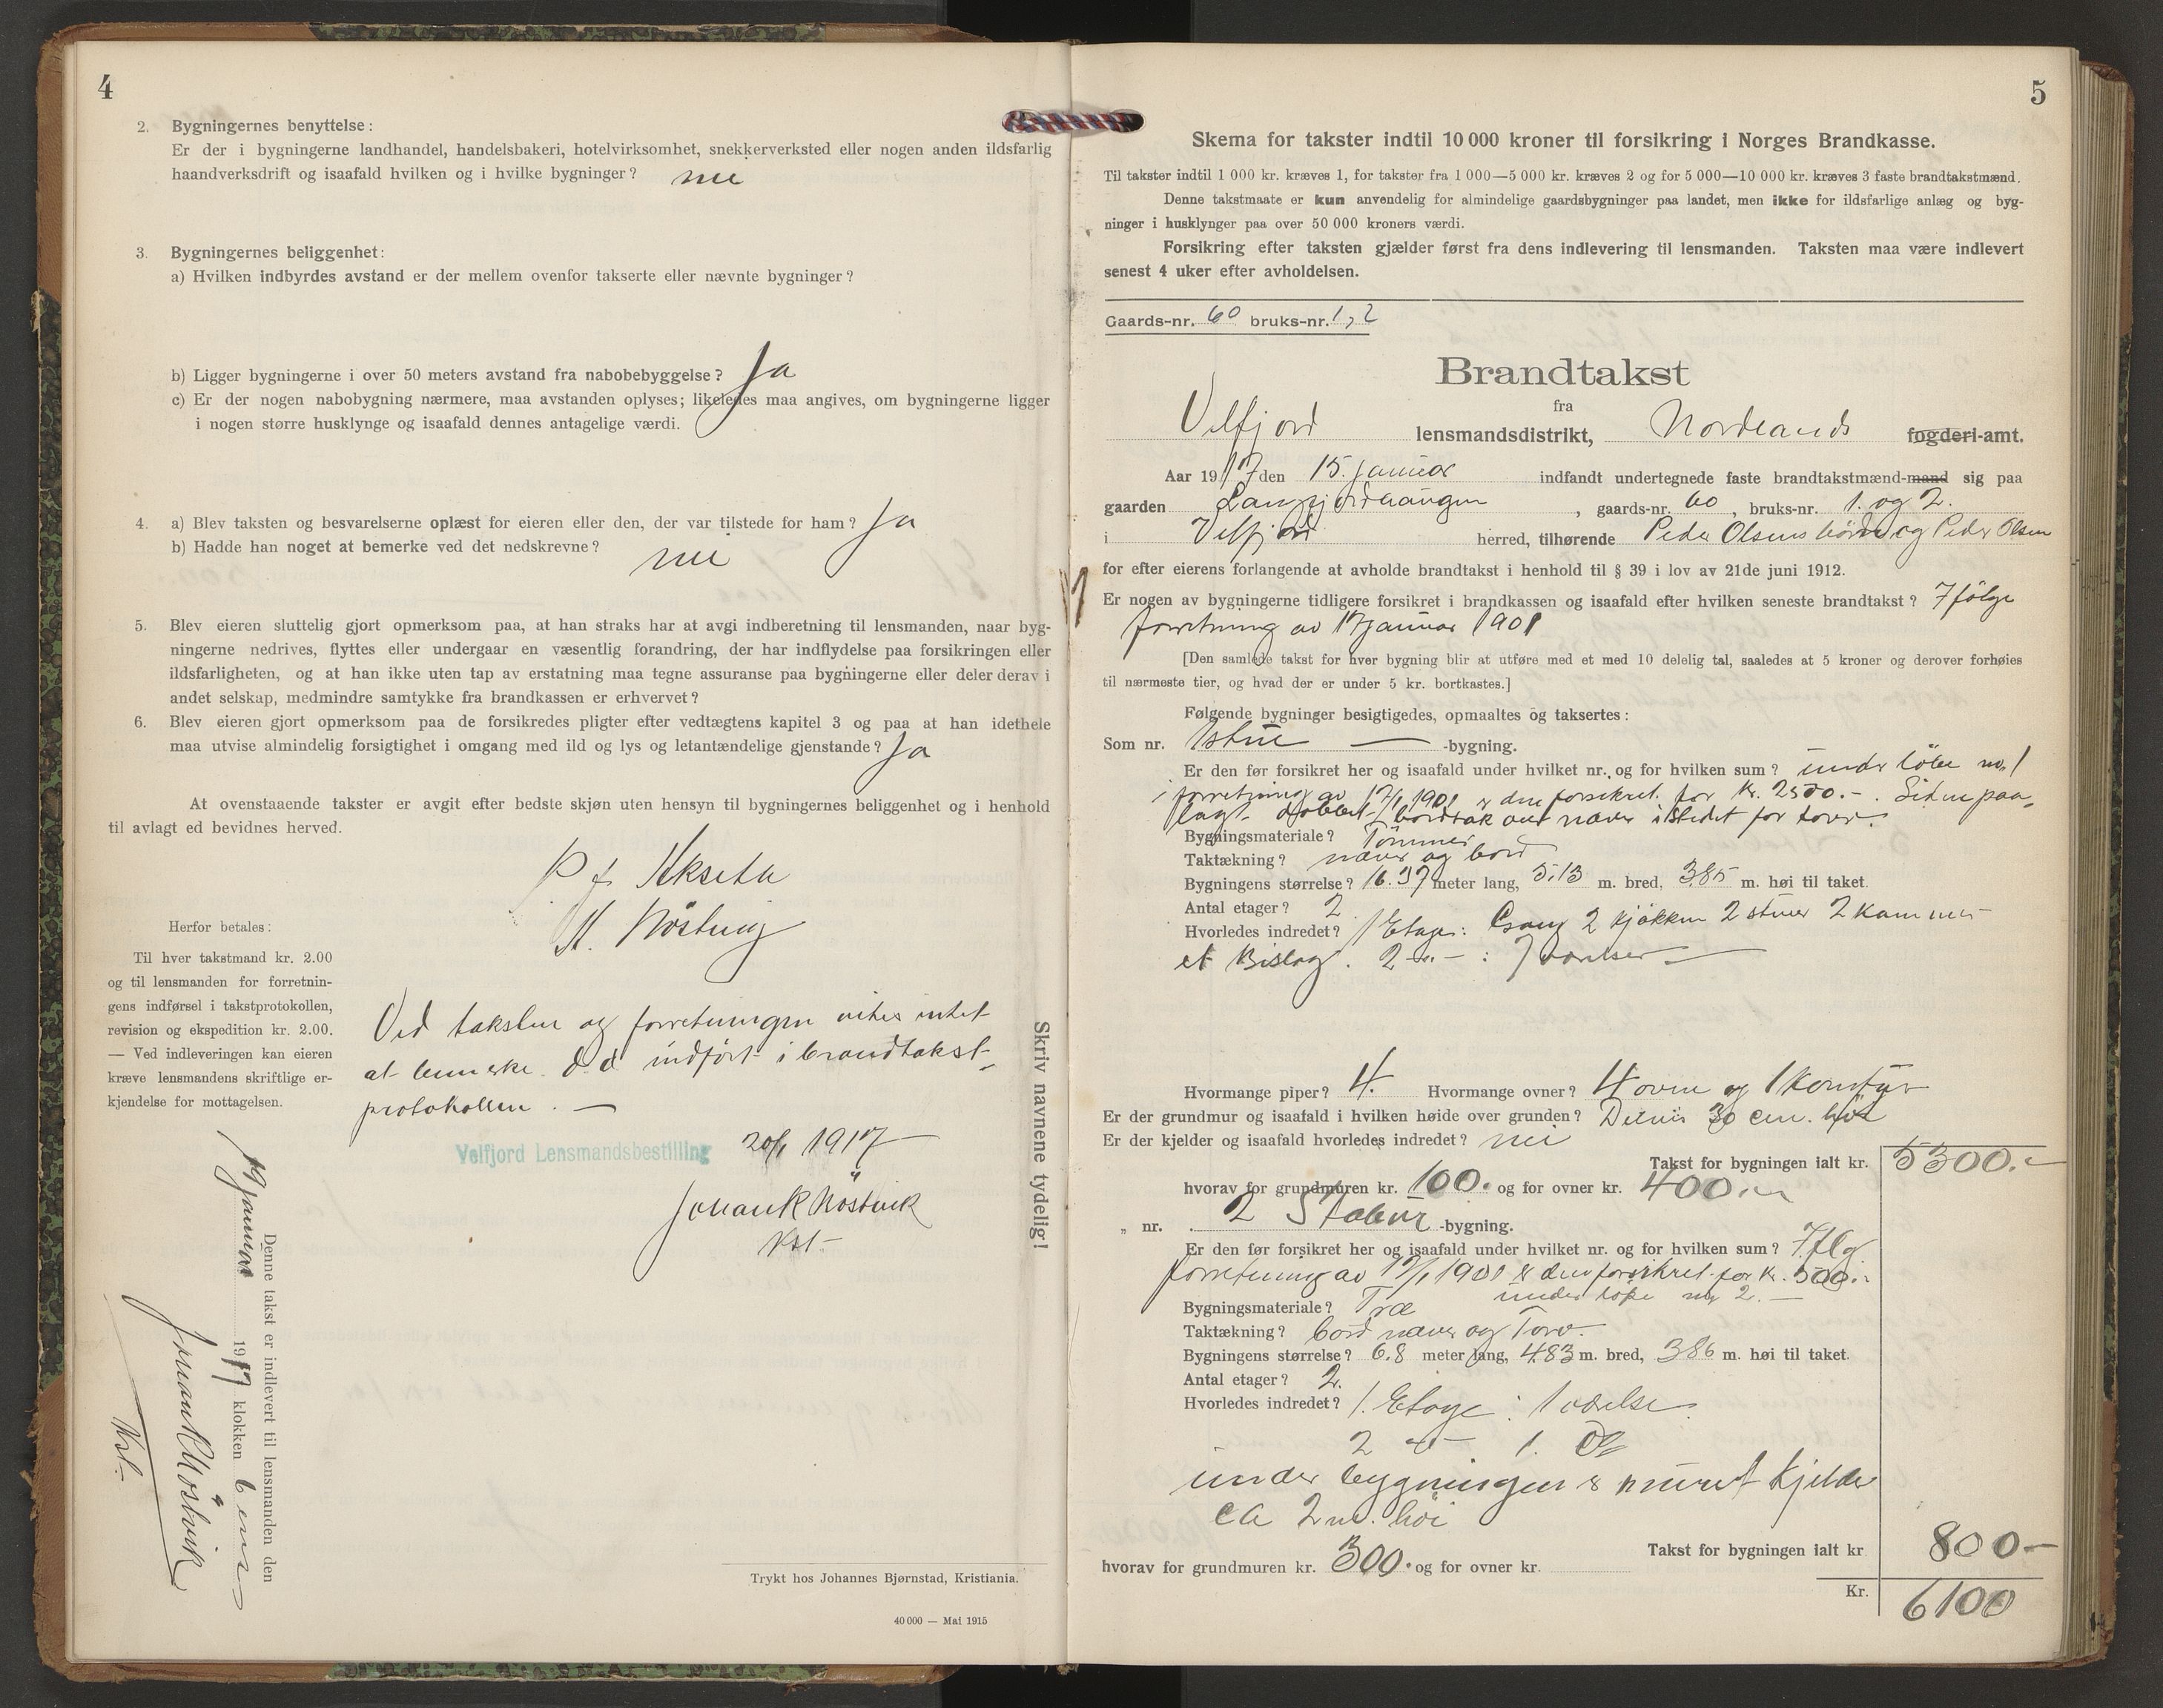 4
2. Bygningernes benyttelse:
Er der i bygningerne landhandel, handelsbakeri, hotelvirksomhet, snekkerverksted eller nogen anden ildsfarlig
haandverksdrift og isaafald hvilken og i hvilke bygninger? nei
3. Bygningernes beliggenhet:
a) Hvilken indbyrdes avstand er der mellem ovenfor takserte eller nævnte bygninger?
b) Ligger bygningerne i over 50 meters avstand fra nabobebyggelse? Ja
c) Er der nogen nabobygning nærmere, maa avstanden oplyses; likeledes maa angives, om bygningerne ligger
i nogen større husklynge og isaafald dennes antagelige værdi.
4. a) Blev taksten og besvarelserne oplæst for eieren eller den, der var tilstede for ham? Ja
b) Hadde han noget at bemerke ved det nedskrevne? nei
5. Blev eieren sluttelig gjort opmerksom paa, at han straks har at avgi indberetning til lensmanden, naar byg-
ningerne nedrives, flyttes eller undergaar en væsentlig forandring, der har indflydelse paa forsikringen eller
ildsfarligheten, og at han ikke uten tap av erstatning maa tegne assuranse paa bygningerne eller deler derav i
andet selskap, medmindre samtykke fra brandkassen er erhvervet?
6. Blev eieren gjort opmerksom paa de forsikredes pligter efter vedtægtens kapitel 3 og paa at han idethele
maa utvise almindelig forsigtighet i omgang med ild og lys og letantændelige gjenstande? Ja
At ovenstaaende takster er avgit efter bedste skjøn uten hensyn til bygningernes beliggenhet og i henhold
til avlagt ed bevidnes herved.
Herfor betales:
Til hver takstmand kr. 2.00
og til lensmanden for forretnin-
gens indførsel i takstprotokollen,
revision og ekspedition kr. 2.00.
— Ved indleveringen kan eieren
kræve lensmandens skriftlige er-
kjendelse for mottagelsen.
Ved taksten og forretningen vites intet
at bemerke. D.d. indført i brandtakst-
protokollen. —
Velfjord Lensmandsbestilling 20/1 1917
Johan K Nöstvik
Kst.
Skriv navnene tydelig!
Denne takst er indlevert til lensmanden den
januar 1917 klokken 6 em
Johan K Nöstvik
Kst.
Trykt hos Johannes Bjørnstad, Kristiania.
40 000 — Mai 1915
5
Skema for takster indtil 10 000 kroner til forsikring i Norges Brandkasse.
Til takster indtil 1 000 kr. kræves 1, for takster fra 1 000—5 000 kr. kræves 2 og for 5 000—10 000 kr. kræves 3 faste brandtakstmænd.
Denne takstmaate er kun anvendelig for almindelige gaardsbygninger paa landet, men ikke for ildsfarlige anlæg og byg-
ninger i husklynger paa over 50 000 kroners værdi.
Forsikring efter taksten gjælder først fra dens indlevering til lensmanden. Taksten maa være indlevert
senest 4 uker efter avholdelsen.
Gaards-nr. 60 bruks-nr. 1, 2
Brandtakst
fra
Velfjord lensmandsdistrikt, Nordlands fogderi-amt.
Aar 1917 den 15. januar indfandt undertegnede faste brandtakstmænd-mand sig paa
gaarden Langfjordaaugen, gaards-nr. 60, bruks-nr. 1. og 2.
i Velfjord herred, tilhørende Peder Olsens og Peder Olsen
for efter eierens forlangende at avholde brandtakst i henhold til § 39 i lov av 21de juni 1912.
Er nogen av bygningerne tidligere forsikret i brandkassen og isaafald efter hvilken seneste brandtakst? Ifölge
forretning av 17 januar 1901
[Den samlede takst for hver bygning blir at utføre med et med 10 delelig tal, saaledes at 5 kroner og derover forhøies
til nærmeste tier, og hvad der er under 5 kr. bortkastes.]
Følgende bygninger besigtigedes, opmaaltes og taksertes:
Som nr. 1 stue — -bygning.
Er den før forsikret her og isaafald under hvilket nr. og for hvilken sum? under löbe nr. 1
i forretning av 17/1 1901 er den forsikret for kr. 2500.-. Siden paa-
lagt dobbelt bordtak over næver istedet for torv.
Bygningsmateriale? Tömmer
Taktækning? næver og bord
Bygningens størrelse? 16.37 meter lang, 5.13 m. bred, 3.85 m. høi til taket.
Antal etager? 2
Hvorledes indredet? 1 Etage: Gang 2 kjökken 2 stuer 2 kammer
et Bislag. 2 —"— : 7 værelser —
Hvormange piper? 4. Hvormange ovner? 4 ovne og 1 komfur
Er der grundmur og isaafald i hvilken høide over grunden? 30 cm. höi
Er der kjelder og isaafald hvorledes indredet? nei
Takst for bygningen ialt kr. 5300.-
hvorav for grundmuren kr. 100. og for ovner kr. 400.-
„ nr. 2 Stabur -bygning.
Er den før forsikret her og isaafald under hvilket nr. og for hvilken sum? Iflg
forretning av 17/1 1901 er den forsikret for kr. 500.-
under löpe nr 2. —
Bygningsmateriale? Træ
Taktækning? bord næver og Torv.
Bygningens størrelse? 6.8 meter lang, 4.83 m. bred, 3.86 m. høi til taket.
Antal etager? 2.
Hvorledes indredet? 1. Etage: 1 værelse.
2 —"— 1. Do
under bygningen er muret kjelder
ca 2 m. höi
Takst for bygningen ialt kr 800-
hvorav for grundmuren kr. 300. og for ovner kr.
Kr. 6100